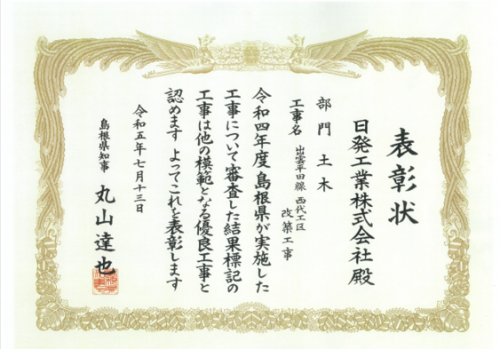 表彰状
日発工業株式会社殿
部門 土木
工事名 出雲平田線 西代工区
改築工事
令和四年度島根県が実施した
工事について審査した結果標記の
工事は他の模範となる優良工事と
認めます よってこれを表彰します
令和五年七月十三日
島根県知事 丸山達也